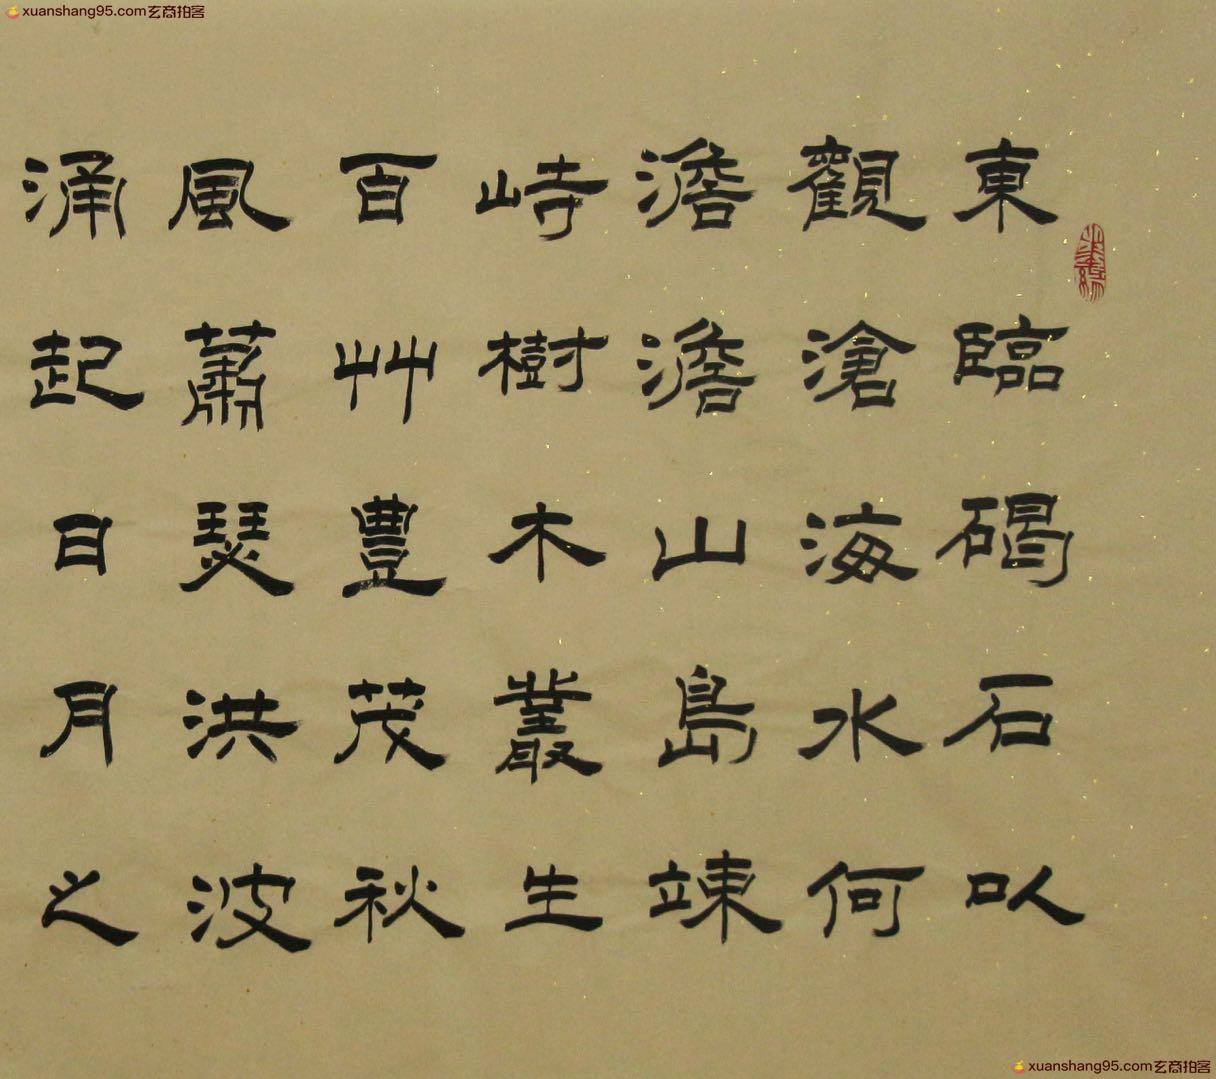 xuanshang95.com玄商拍客
東臨碣石以
觀滄海水何
澹澹山島竦
峙樹木叢生
百艸豐茂秋
風蕭瑟洪波
涌起日月之
xuanshang95.com玄商拍客